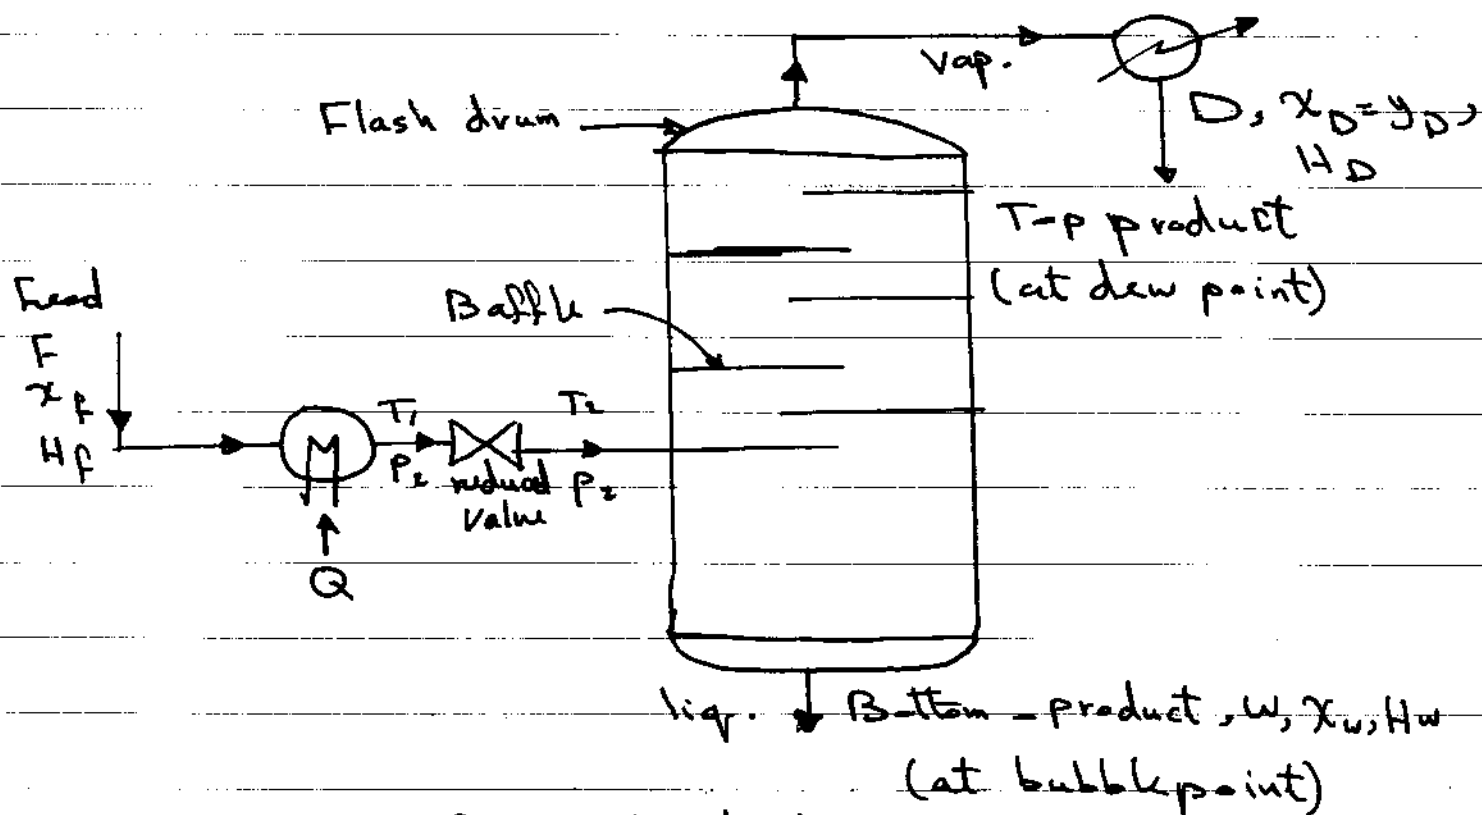 Vap.
Flash drum
D, x_D = y_D,
H_D
T-p product
(at dew point)
Feed
F
x_f
H_f
Baffle
T_1
T_2
P_2
reduced
valve
P_2
Q
liq.
Bottom - product, W, x_w, H_w
(at bubble point)